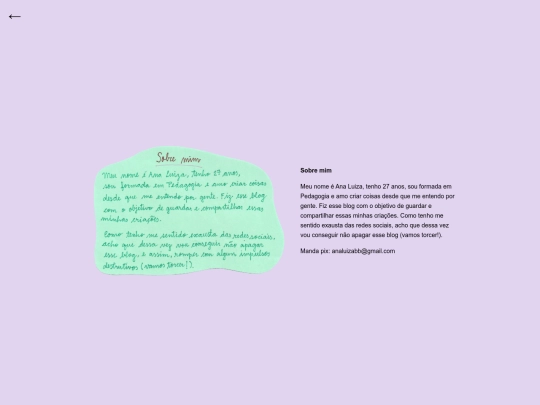 ←
Sobre mim
Meu nome é Ana Luiza, tenho 27 anos,
sou formada em Pedagogia e amo criar coisas
desde que me entendo por gente. Fiz esse blog
com o objetivo de guardar e compartilhar essas
minhas criações.
Como tenho me sentido exausta das redes sociais,
acho que dessa vez vou conseguir não apagar
esse blog, e assim, romper com algum impulso
destrutivos (vamos torcer!).
Sobre mim
Meu nome é Ana Luiza, tenho 27 anos, sou formada em
Pedagogia e amo criar coisas desde que me entendo por
gente. Fiz esse blog com o objetivo de guardar e
compartilhar essas minhas criações. Como tenho me
sentido exausta das redes sociais, acho que dessa vez
vou conseguir não apagar esse blog (vamos torcer!).
Manda pix: analuizabb@gmail.com